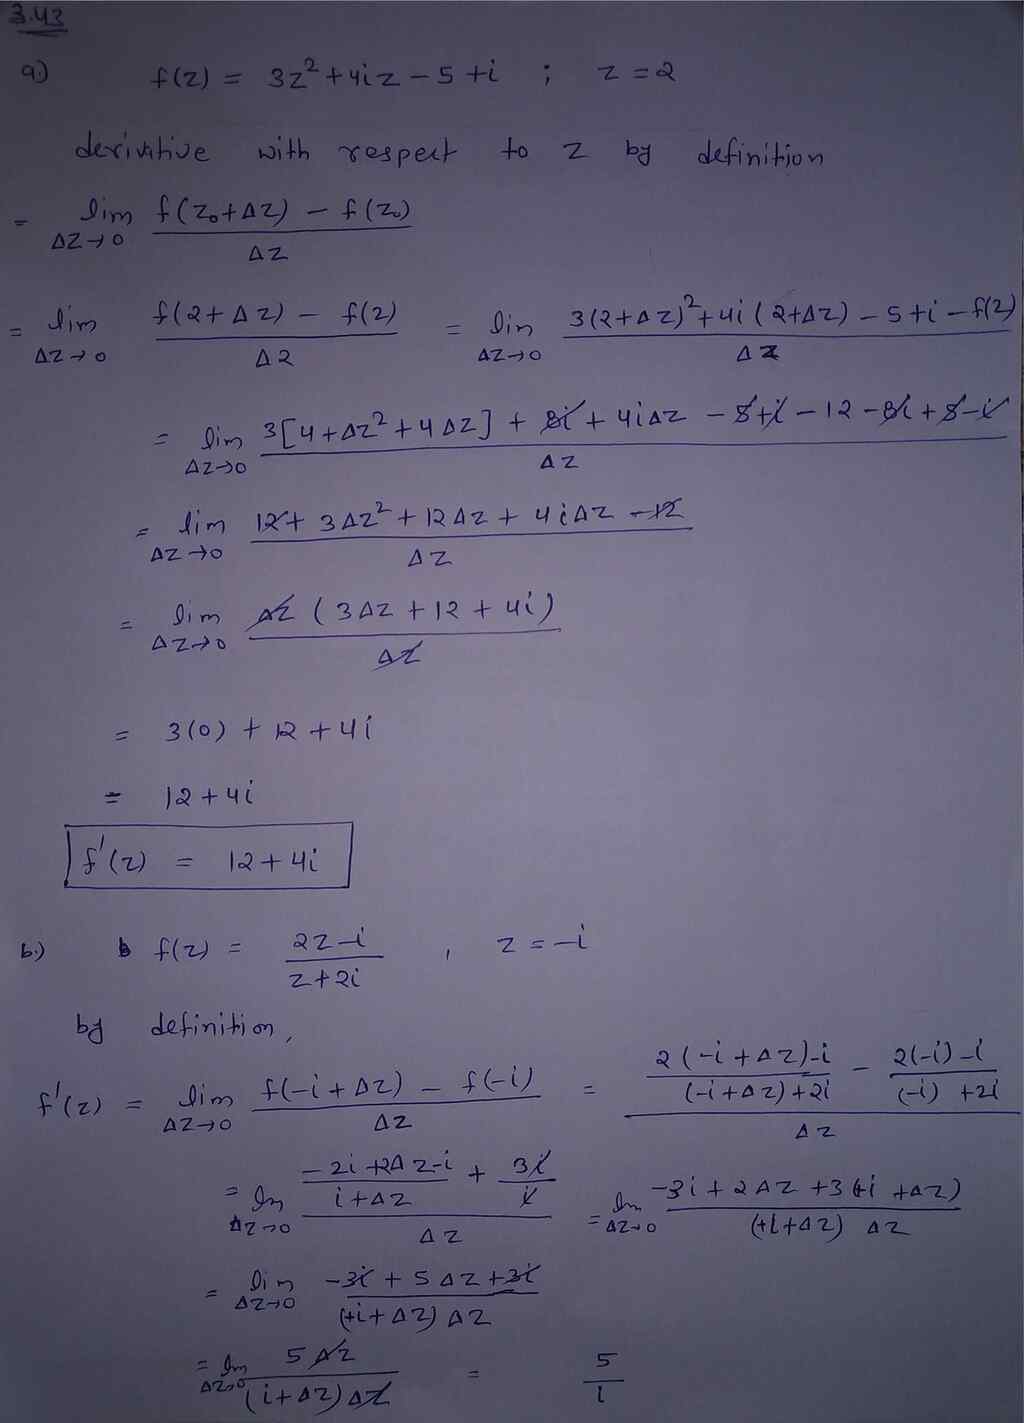 3.43
a.) f(z) = 3z² + 4iz - 5 + i ; z = 2
derivative with respect to z by definition
= lim Δz→0 (f(z₀+Δz) - f(z₀)) / Δz
= lim Δz→0 (f(2+Δz) - f(2)) / Δ2 = lim Δz→0 (3(2+Δz)² + 4i(2+Δz) - 5 + i - f(2)) / Δz
= lim Δz→0 (3[4+Δz²+4Δz] + 8i + 4iΔz - 5 + i - 12 - 8i + 5 - i) / Δz
= lim Δz→0 (12 + 3Δz² + 12Δz + 4iΔz - 12) / Δz
= lim Δz→0 (Δz (3Δz + 12 + 4i)) / Δz
= 3(0) + 12 + 4i
= 12 + 4i
f'(z) = 12 + 4i
b.) f(z) = (2z-i) / (z+2i) , z = -i
by definition,
f'(z) = lim Δz→0 (f(-i+Δz) - f(-i)) / Δz = ((2(-i+Δz)-i) / ((-i+Δz)+2i) - (2(-i)-i) / ((-i)+2i)) / Δz
= lim Δz→0 ((-2i+2Δz-i) / (i+Δz) + 3i/i) / Δz = lim Δz→0 (-3i+2Δz+3(+i+Δz)) / ((+i+Δz) Δz)
= lim Δz→0 (-3i + 5Δz + 3i) / ((+i+Δz) Δz)
= lim Δz→0 5Δz / ((i+Δz)Δz) = 5/i